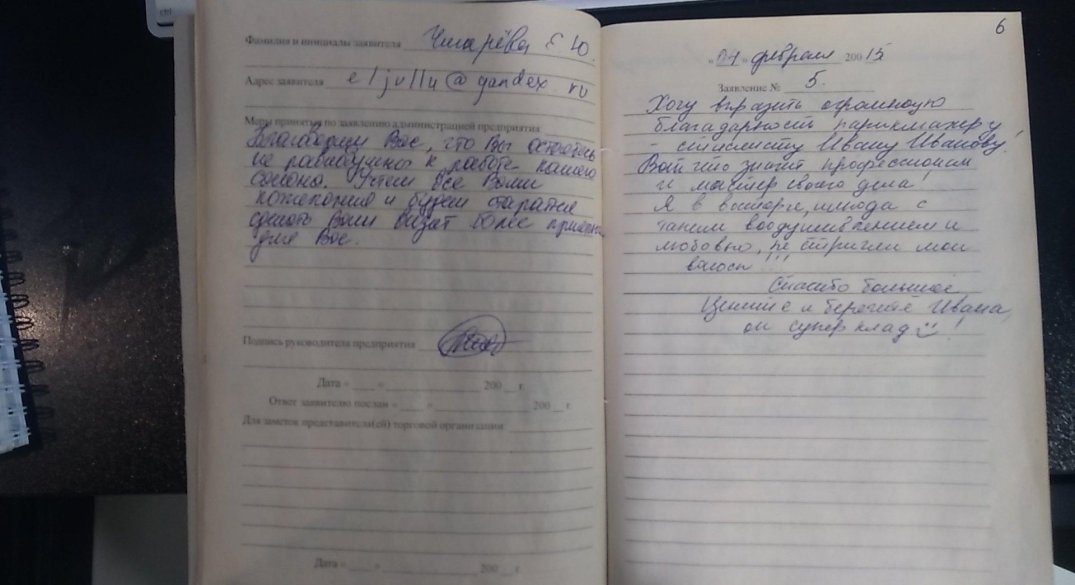 ctrl
Фамилия и инициалы заявителя Чмарёва Е Ю.
Адрес заявителя eljully@yandex.ru
Меры принятые по заявлению администрацией предприятия
Благодарим Вас, что Вы остались
не равнодушны к работе нашего
салона. Учтем все Ваши
пожелания и будем стараться
сделать Ваш визит более приятным
для Вас.
Подпись руководителя предприятия
Дата « » 200 г.
Ответ заявителю послан « » 200 г.
Для заметок представителя(ей) торговой организации
Дата « » 200 г.
6
«04» февраля 200 15
Заявление № 5.
Хочу выразить огромную
благодарность парикмахеру
- стилисту Ивану Иванову!
Вот что значит профессионал
и мастер своего дела!
Я в восторге, никогда с
таким воодушевлением и
любовью, не стригли мои
волосы!!!
Спасибо большое
Цените и берегите Ивана,
он супер клад!